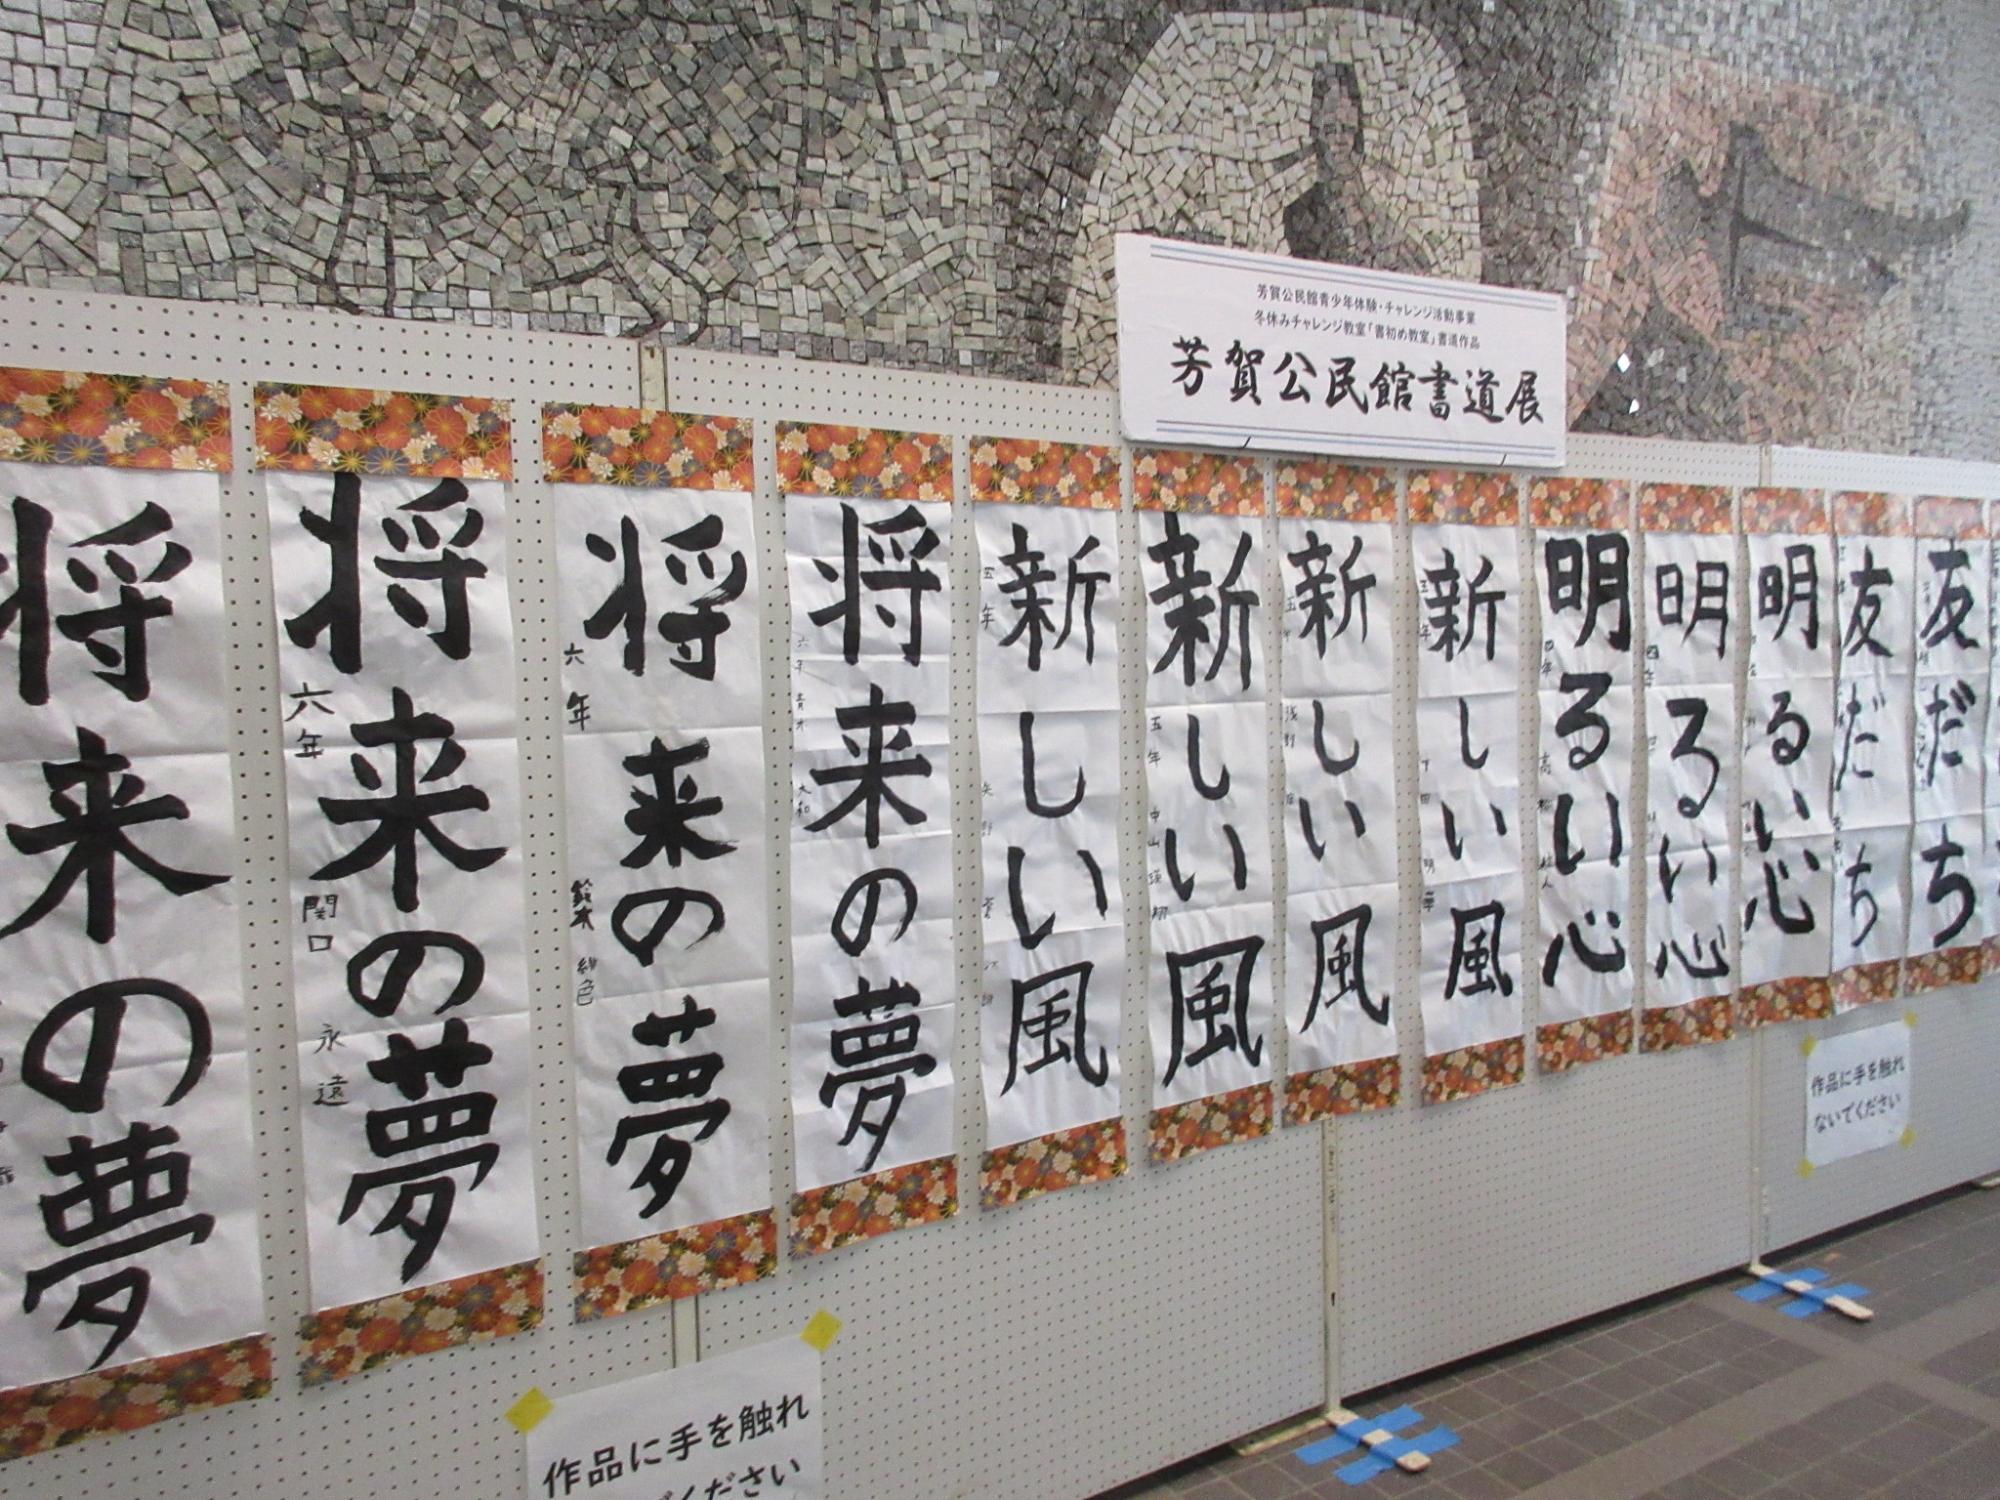 芳賀公民館青少年体験・チャレンジ活動事業
冬休みチャレンジ教室「書初め教室」書道作品
芳賀公民館書道展
将来の夢
将来の夢
六年
関口
永遠
将来の夢
六年
鈴木
緋色
将来の夢
六年
青木
大和
新しい風
五年
矢野
新しい風
五年
中山
新しい風
浅野
新しい風
五年
下田
明るい心
四年
高柳
明るい心
四年
明るい心
友だち
友だち
作品に手を触れ
ないでください
作品に手を触れ
ください